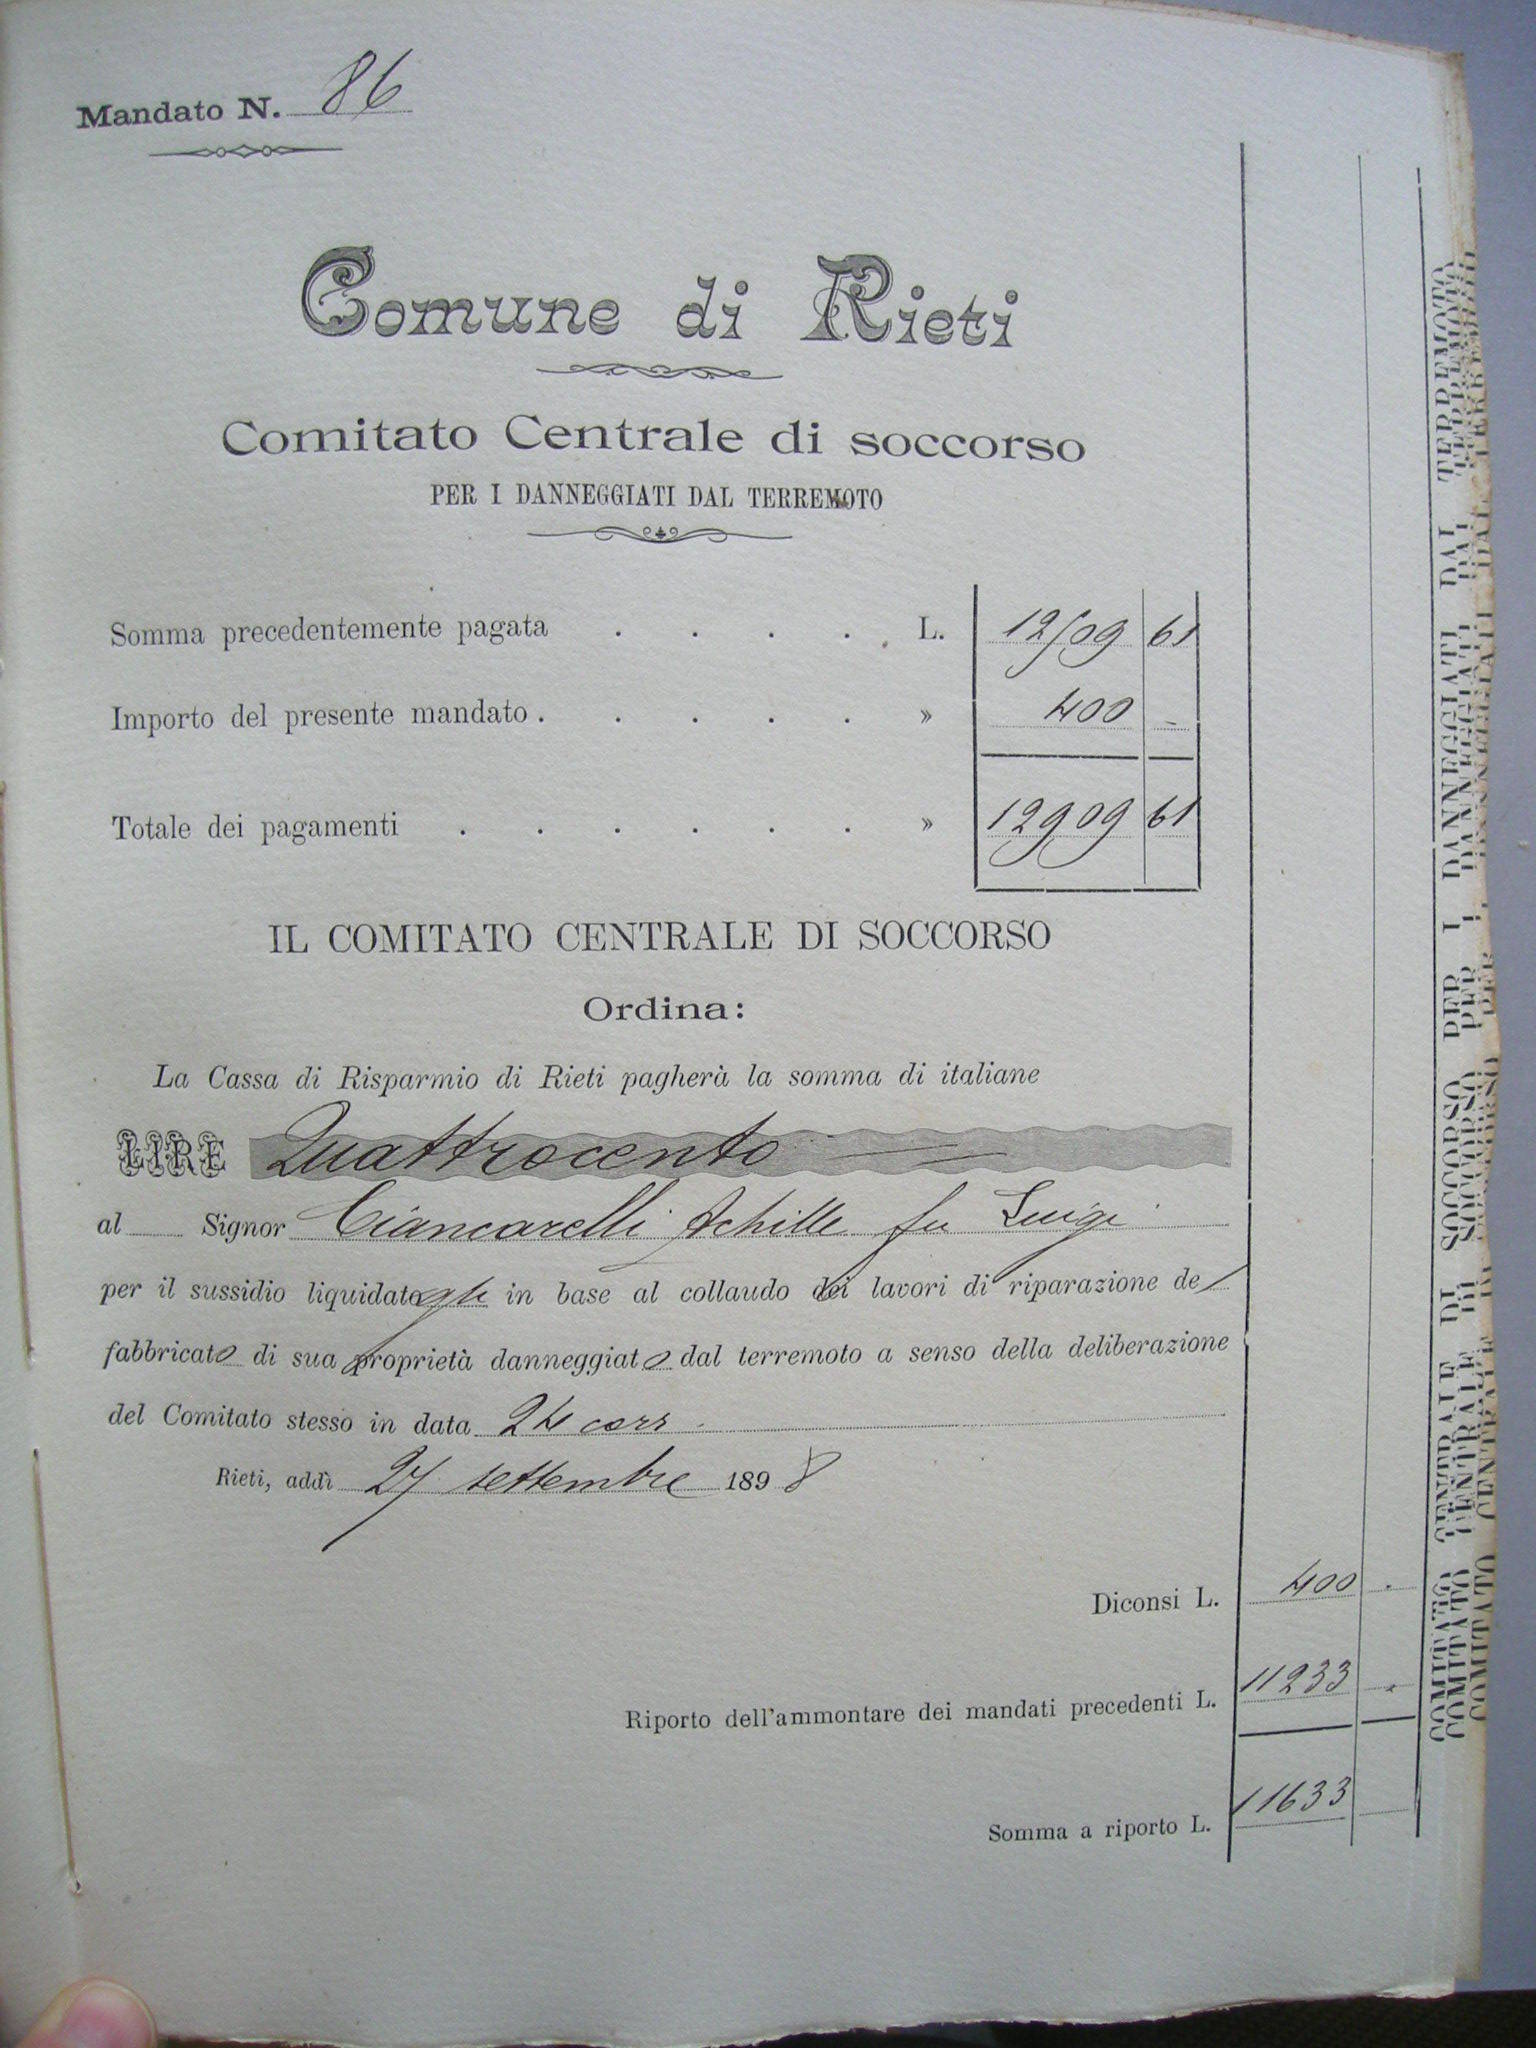 Mandato N. 86
Comune di Rieti
Comitato Centrale di soccorso
PER I DANNEGGIATI DAL TERREMOTO
Somma precedentemente pagata . . . . L. 12509 61
Importo del presente mandato . . . . . » 400 -
Totale dei pagamenti . . . . . . » 12909 61
IL COMITATO CENTRALE DI SOCCORSO
Ordina:
La Cassa di Risparmio di Rieti pagherà la somma di italiane
LIRE Quattrocento
al Signor Ciancarelli Achille fu Luigi
per il sussidio liquidatogli in base al collaudo dei lavori di riparazione del
fabbricato di sua proprietà danneggiato dal terremoto a senso della deliberazione
del Comitato stesso in data 24 corr
Rieti, addì 27 settembre 1898
Diconsi L. 400 .
Riporto dell'ammontare dei mandati precedenti L. 11233 .
Somma a riporto L. 11633
COMITATO CENTRALE DI SOCCORSO PER I DANNEGGIATI DAL TERREMOTO
COMITATO CENTRALE DI SOCCORSO PER I DANNEGGIATI DAL TERREMOTO
COMITATO CENTRALE DI SOCCORSO PER I DANNEGGIATI DAL TERREMOTO